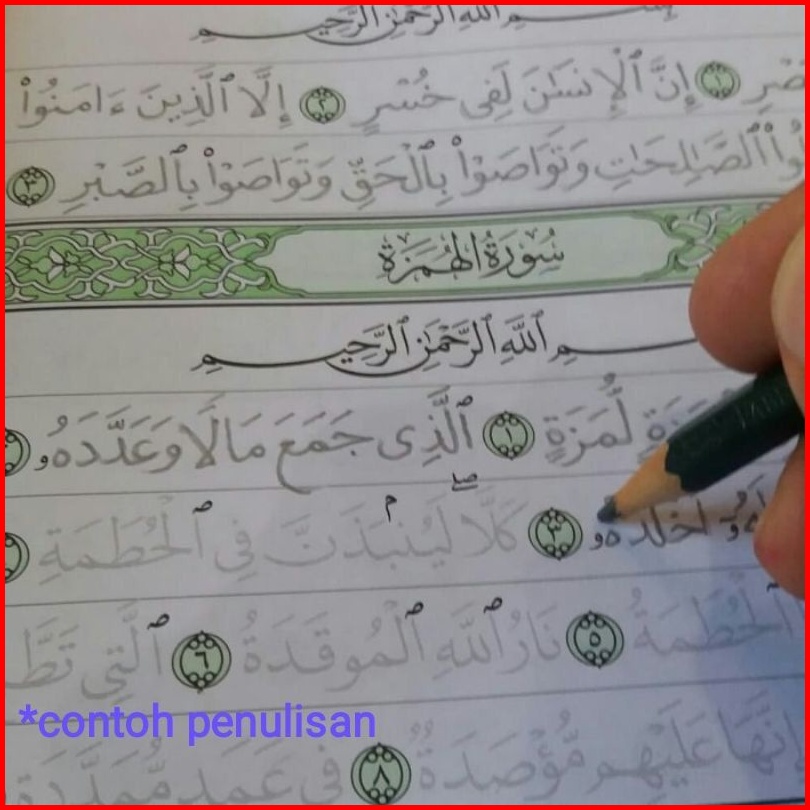 بِسْمِ ٱللَّهِ ٱلرَّحْمَٰنِ ٱلرَّحِيمِ
١ إِنَّ ٱلْإِنسَٰنَ لَفِى خُسْرٍ ٢ إِلَّا ٱلَّذِينَ ءَامَنُوا۟
ٱلصَّٰلِحَٰتِ وَتَوَاصَوْا۟ بِٱلْحَقِّ وَتَوَاصَوْا۟ بِٱلصَّبْرِ ٣
سُورَةُ الْهُمَزَةِ
بِسْمِ ٱللَّهِ ٱلرَّحْمَٰنِ ٱلرَّحِيمِ
لُّمَزَةٍ ١ ٱلَّذِى جَمَعَ مَالًا وَعَدَّدَهُۥ
أَخْلَدَهُۥ ٣ كَلَّا ۖ لَيُنۢبَذَنَّ فِى ٱلْحُطَمَةِ
ٱلْحُطَمَةُ ٥ نَارُ ٱللَّهِ ٱلْمُوقَدَةُ ٦ ٱلَّتِى
إِنَّهَا عَلَيْهِم مُّؤْصَدَةٌ ٨ فِى عَمَدٍ مُّمَدَّدَةٍ
*contoh penulisan